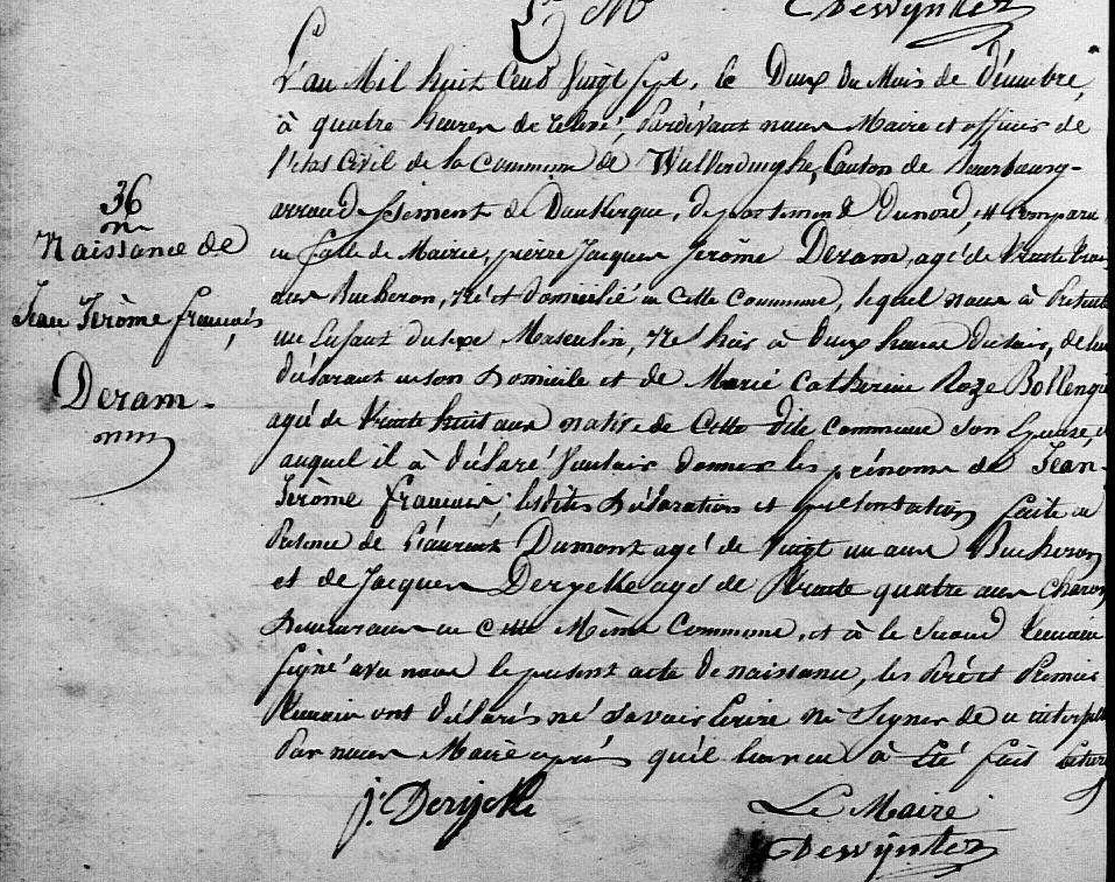 Dewynter
36
Naissance de
Jean Jérôme françois
Deram.
L'an Mil huit Cend Vingt Sept, le Deux du Mois de Décembre,
à quatre heures de relevé, Pardevant nous Maire et officier de
l'état Civil de la Commune de Wulverdinghe, Canton de Bourbourg-
arrondissement de Dunkerque, département du nord, est comparu
en Salle de Mairie, pierre Jacques Jerôme Deram, agé de Trente trois
ans Bucheron, né et domicilié en Cette Commune, lequel nous à Présenté
un Enfant du sexe Masculin, né hier à deux heures du soir, de lui
déclarant en son Domicile et de Marie Catherine Roze Bollengi
agé de trente huit ans native de Cette dite Commune son Epouse, et
auquel il à déclaré Vouloir donner les prénoms de Jean-
Jerôme françois; lesdites Déclaration et présentation faite en
Présence de Dumont agé de Vingt un ans Bucheron
et de Jacques Derycke agé de Trente quatre ans Charon
Demeurans en Cette Même Commune, et à le Second temoin
Signé avec nous le present acte de naissance, les Pére et Premier
temoin ont déclarés né Savoir Ecrire ni Signer de ce interpellé
Par nous Maire aprés qu'il leur en à Eté fait lecture
j. Derycke
Le Maire
Dewynter